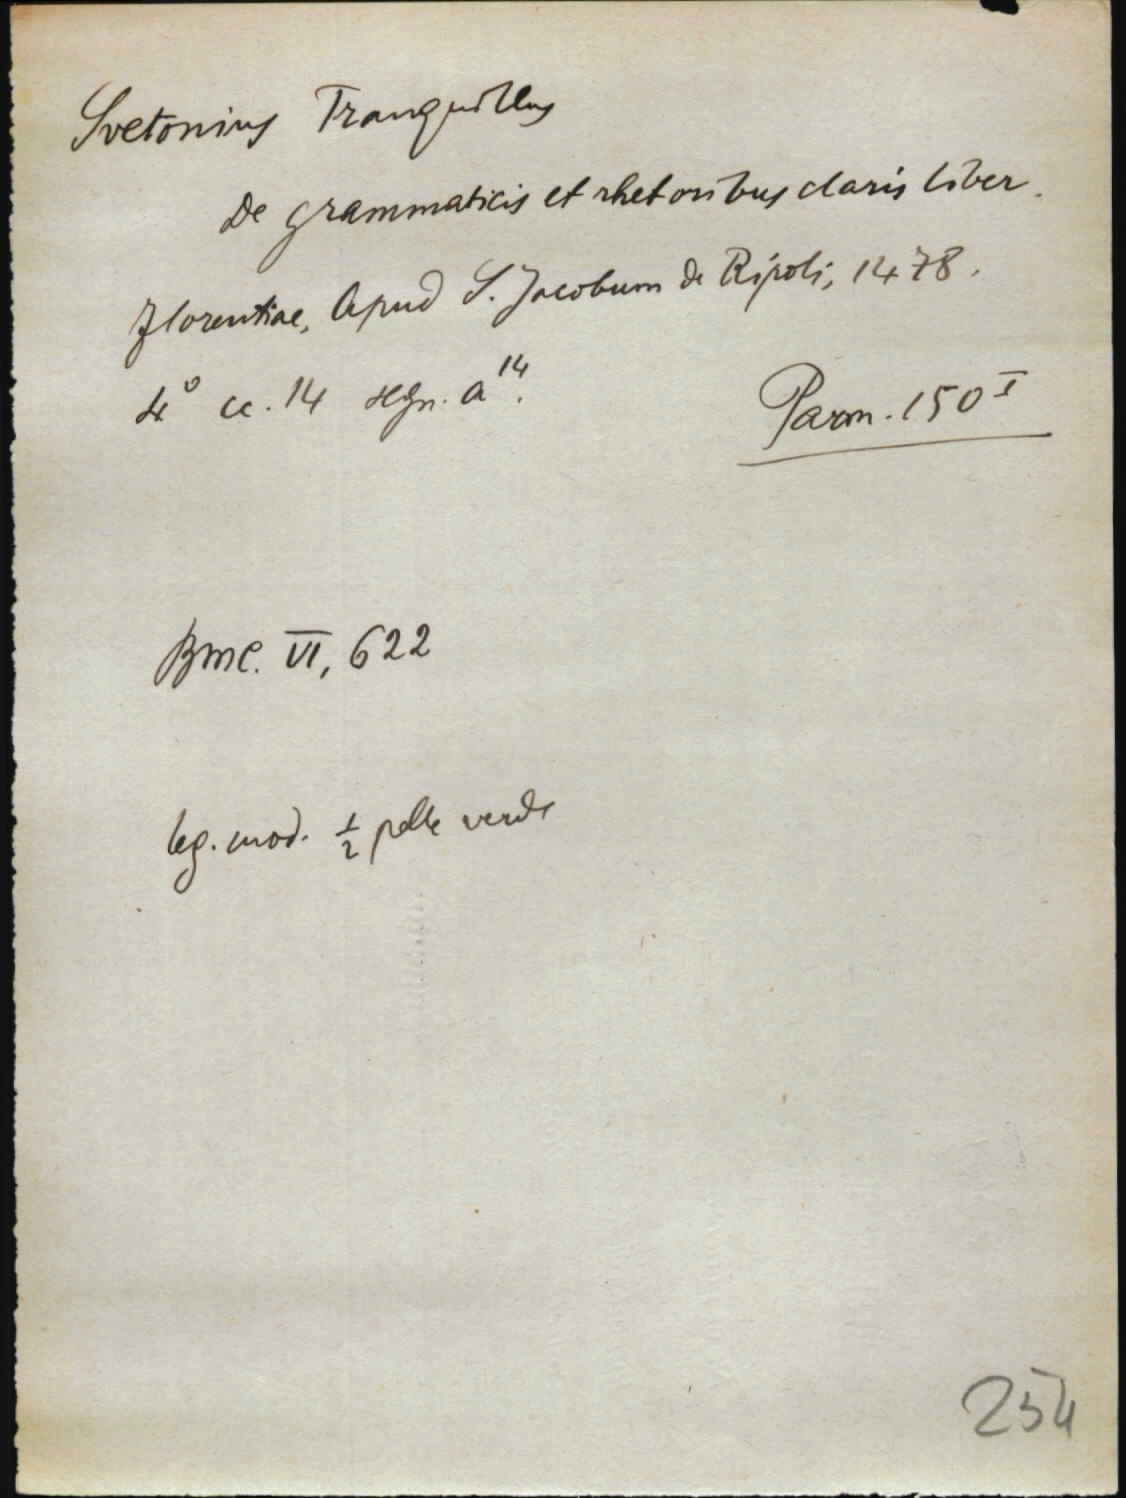 Svetonius Tranquillus
De grammaticis et rhetoribus claris liber.
Florentiae, Apud S. Jacobum de Ripoli, 1478.
4° cc. 14 segn. a¹⁴.
Parm. 150 I
BMC. VI, 622
leg. mod. ½ pelle verde
254